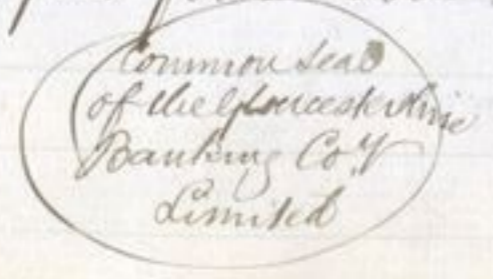 Common Seal
of the Gloucestershire
Banking Coy
Limited